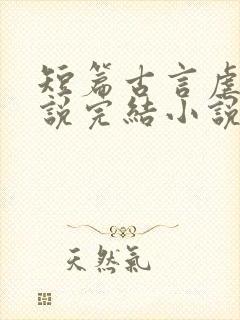 短篇古言虐
說完結小說
天然氣